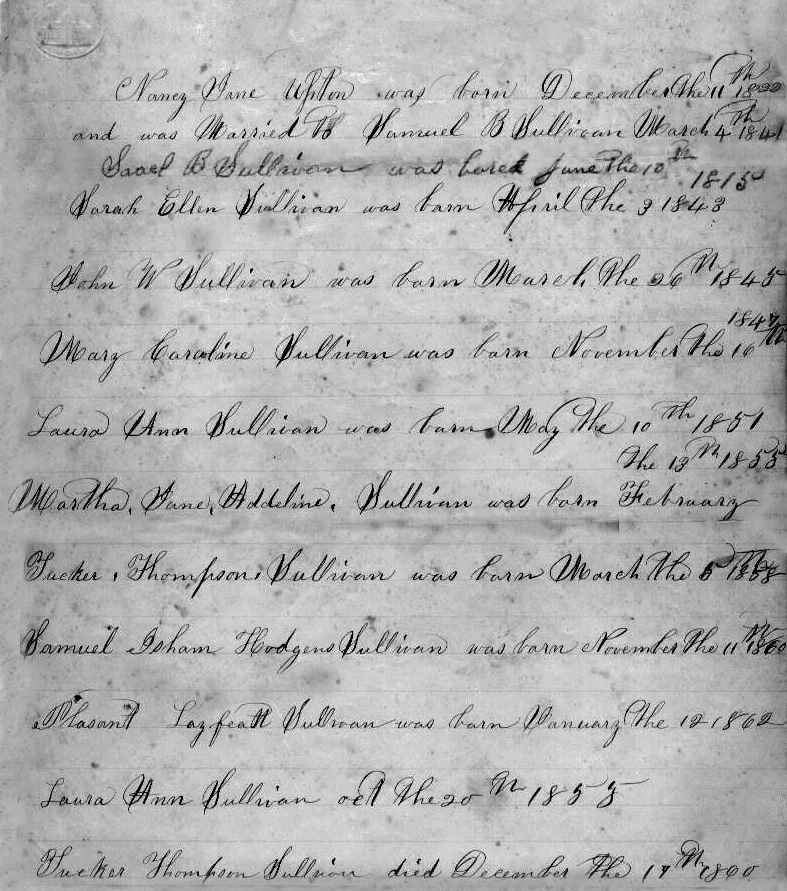 Nancy Jane Upton was born December the 11th 1822
and was Married to Samuel B Sullivan March 4th 1841
B Sullivan was born June the 10th 1815
Sarah Ellen Sullivan was born April the 3 1843
John W Sullivan was born March the 26th 1845
1847
Mary Caroline Sullivan was born November the 16th
Laura Ann Sullivan was born May the 10th 1851
the 13th 1855
Martha, Jane, Addeline, Sullivan was born February
Tucker, Thompson, Sullivan was born March the 5th 1858
Samuel Isham Hodgens Sullivan was born November the 11th 1860
Plasant Sullivan was born January the 12 1862
Laura Ann Sullivan oct the 20th 1855
Tucker Thompson Sullivan died December the 17th 1860